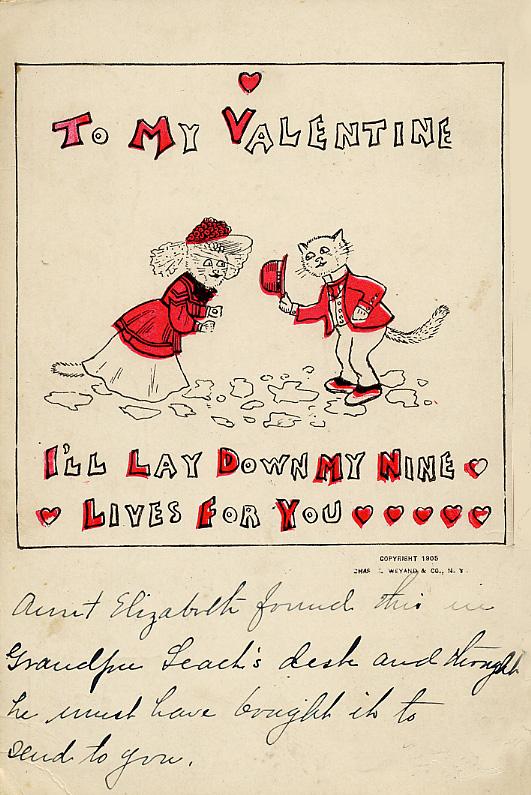 To My Valentine
I'll Lay Down My Nine
Lives For You
COPYRIGHT 1905
CHAS. WEYAND & CO., N. Y.
Aunt Elizabeth found this in
Grandpa Leach's desk and thought
he must have bought it to
send to you.